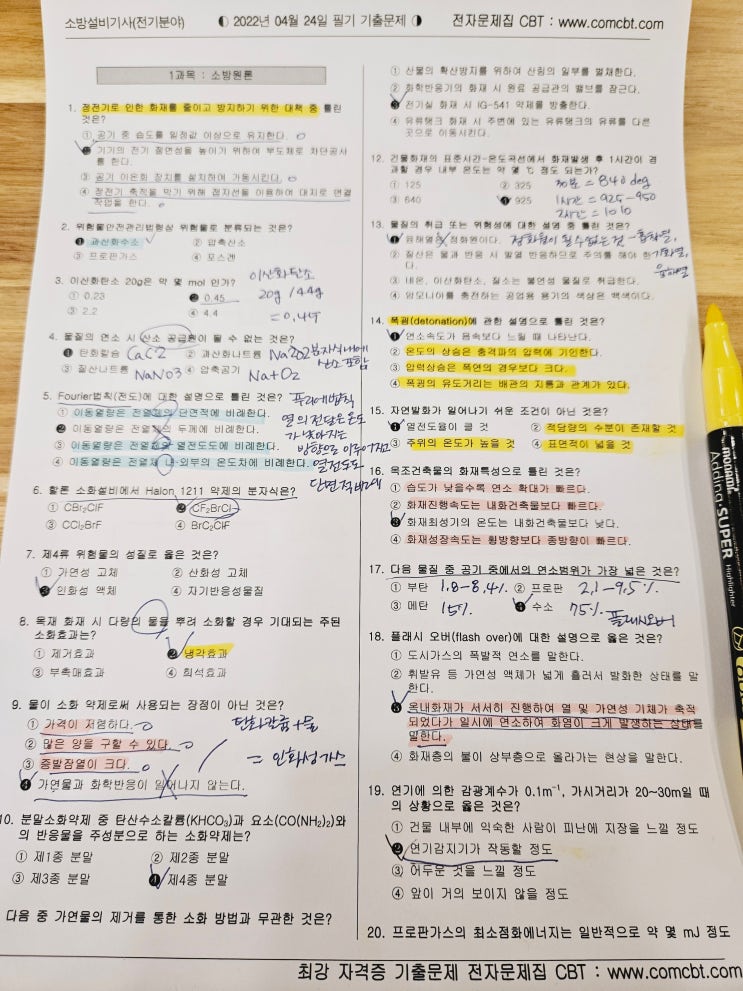 소방설비기사(전기분야)
◐ 2022년 04월 24일 필기 기출문제 ◑
전자문제집 CBT : www.comcbt.com
1과목 : 소방원론
1. 정전기로 인한 화재를 줄이고 방지하기 위한 대책 중 틀린
것은?
① 공기 중 습도를 일정값 이상으로 유지한다.
❷ 기기의 전기 절연성을 높이기 위하여 부도체로 차단공사
를 한다.
③ 공기 이온화 장치를 설치하여 가동시킨다.
④ 정전기 축적을 막기 위해 접지선을 이용하여 대지로 연결
작업을 한다.
2. 위험물안전관리법령상 위험물로 분류되는 것은?
❶ 과산화수소 ② 압축산소
③ 프로판가스 ④ 포스겐
3. 이산화탄소 20g은 약 몇 mol 인가?
이산화탄소
① 0.23 ❷ 0.45
20g/44g
③ 2.2 ④ 4.4
=0.45
4. 물질의 연소 시 산소 공급원이 될 수 없는 것은?
❶ 탄화칼슘 CaC2 ② 과산화나트륨 Na2O2 분자식내에
산소포함
③ 질산나트륨 NaNO3 ④ 압축공기 Na+O2
5. Fourier법칙(전도)에 대한 설명으로 틀린 것은?
푸리에법칙
① 이동열량은 전열체의 단면적에 비례한다.
❷ 이동열량은 전열체의 두께에 비례한다.
③ 이동열량은 전열체의 열전도도에 비례한다.
④ 이동열량은 전열체 내·외부의 온도차에 비례한다.
열의 전달은 온도
가 낮아지는
방향으로 이루어지고
열전도도
단면적 비례
6. 할론 소화설비에서 Halon 1211 약제의 분자식은?
① CBr₂ClF ❷ CF₂BrCl
③ CCl₂BrF ④ BrC₂ClF
7. 제4류 위험물의 성질로 옳은 것은?
① 가연성 고체 ② 산화성 고체
❸ 인화성 액체 ④ 자기반응성물질
8. 목재 화재 시 다량의 물을 뿌려 소화할 경우 기대되는 주된
소화효과는?
① 제거효과 ❷ 냉각효과
③ 부촉매효과 ④ 희석효과
9. 물이 소화 약제로써 사용되는 장점이 아닌 것은?
① 가격이 저렴하다.
② 많은 양을 구할 수 있다.
③ 증발잠열이 크다.
❹ 가연물과 화학반응이 일어나지 않는다.
탄화칼슘+물
= 인화성가스
10. 분말소화약제 중 탄산수소칼륨(KHCO₃)과 요소(CO(NH₂)₂)와
의 반응물을 주성분으로 하는 소화약제는?
① 제1종 분말 ② 제2종 분말
③ 제3종 분말 ❹ 제4종 분말
다음 중 가연물의 제거를 통한 소화 방법과 무관한 것은?
① 산불의 확산방지를 위하여 산림의 일부를 벌채한다.
② 화학반응기의 화재 시 원료 공급관의 밸브를 잠근다.
❸ 전기실 화재 시 IG-541 약제를 방출한다.
④ 유류탱크 화재 시 주변에 있는 유류탱크의 유류를 다른
곳으로 이동시킨다.
12. 건물화재의 표준시간-온도곡선에서 화재발생 후 1시간이 경
과할 경우 내부 온도는 약 몇 ℃ 정도 되는가?
① 125 ② 325
③ 640 ❹ 925
30분 = 840deg
1시간 = 925-950
2시간 = 1010
13. 물질의 취급 또는 위험성에 대한 설명 중 틀린 것은?
❶ 융해열은 점화원이다. 점화원이 될수없는 것-흡착열,
② 질산은 물과 반응 시 발열 반응하므로 주의를 해야 한다.
기화열,
융해열
③ 네온, 이산화탄소, 질소는 불연성 물질로 취급한다.
④ 암모니아를 충전하는 공업용 용기의 색상은 백색이다.
14. 폭굉(detonation)에 관한 설명으로 틀린 것은?
❶ 연소속도가 음속보다 느릴 때 나타난다.
② 온도의 상승은 충격파의 압력에 기인한다.
③ 압력상승은 폭연의 경우보다 크다.
④ 폭굉의 유도거리는 배관의 지름과 관계가 있다.
15. 자연발화가 일어나기 쉬운 조건이 아닌 것은?
❶ 열전도율이 클 것 ② 적당량의 수분이 존재할 것
③ 주위의 온도가 높을 것 ④ 표면적이 넓을 것
16. 목조건축물의 화재특성으로 틀린 것은?
① 습도가 낮을수록 연소 확대가 빠르다.
② 화재진행속도는 내화건축물보다 빠르다.
❸ 화재최성기의 온도는 내화건축물보다 낮다.
④ 화재성장속도는 횡방향보다 종방향이 빠르다.
17. 다음 물질 중 공기 중에서의 연소범위가 가장 넓은 것은?
① 부탄 1.8-8.4% ② 프로판 2.1-9.5%
③ 메탄 15% ❹ 수소 75%
플래시오버
18. 플래시 오버(flash over)에 대한 설명으로 옳은 것은?
① 도시가스의 폭발적 연소를 말한다.
② 휘발유 등 가연성 액체가 넓게 흘러서 발화한 상태를 말
한다.
❸ 옥내화재가 서서히 진행하여 열 및 가연성 기체가 축적
되었다가 일시에 연소하여 화염이 크게 발생하는 상태를
말한다.
④ 화재층의 불이 상부층으로 올라가는 현상을 말한다.
19. 연기에 의한 감광계수가 0.1m⁻¹, 가시거리가 20~30m일 때
의 상황으로 옳은 것은?
① 건물 내부에 익숙한 사람이 피난에 지장을 느낄 정도
❷ 연기감지기가 작동할 정도
③ 어두운 것을 느낄 정도
④ 앞이 거의 보이지 않을 정도
20. 프로판가스의 최소점화에너지는 일반적으로 약 몇 mJ 정도
최강 자격증 기출문제 전자문제집 CBT : www.comcbt.com
monami
Adding.SUPER
Highlighter